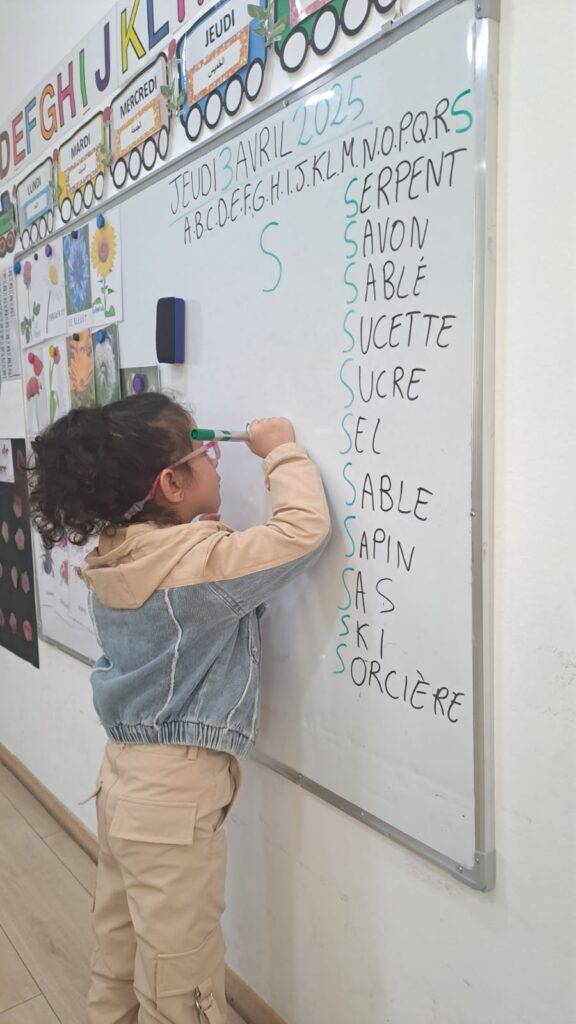 DEFGHIJKL
LUNDI
MARDI
MERCREDI
JEUDI
الخميس
JEUDI 3 AVRIL 2025
A.B.C.D.E.F.G.H.I.J.K.L.M.N.O.P.Q.R.S
S
SERPENT
SAVON
SABLÉ
SUCETTE
SUCRE
SEL
SABLE
SAPIN
SAS
SKI
SORCIÈRE